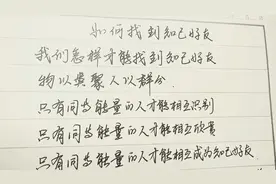 如何找到知己好友
我们怎样才能找到知己好友
物以类聚人以群分
只有同等能量的人才能相互识别
只有同等能量的人才能相互欣赏
只有同等能量的人才能相互成为知己好友